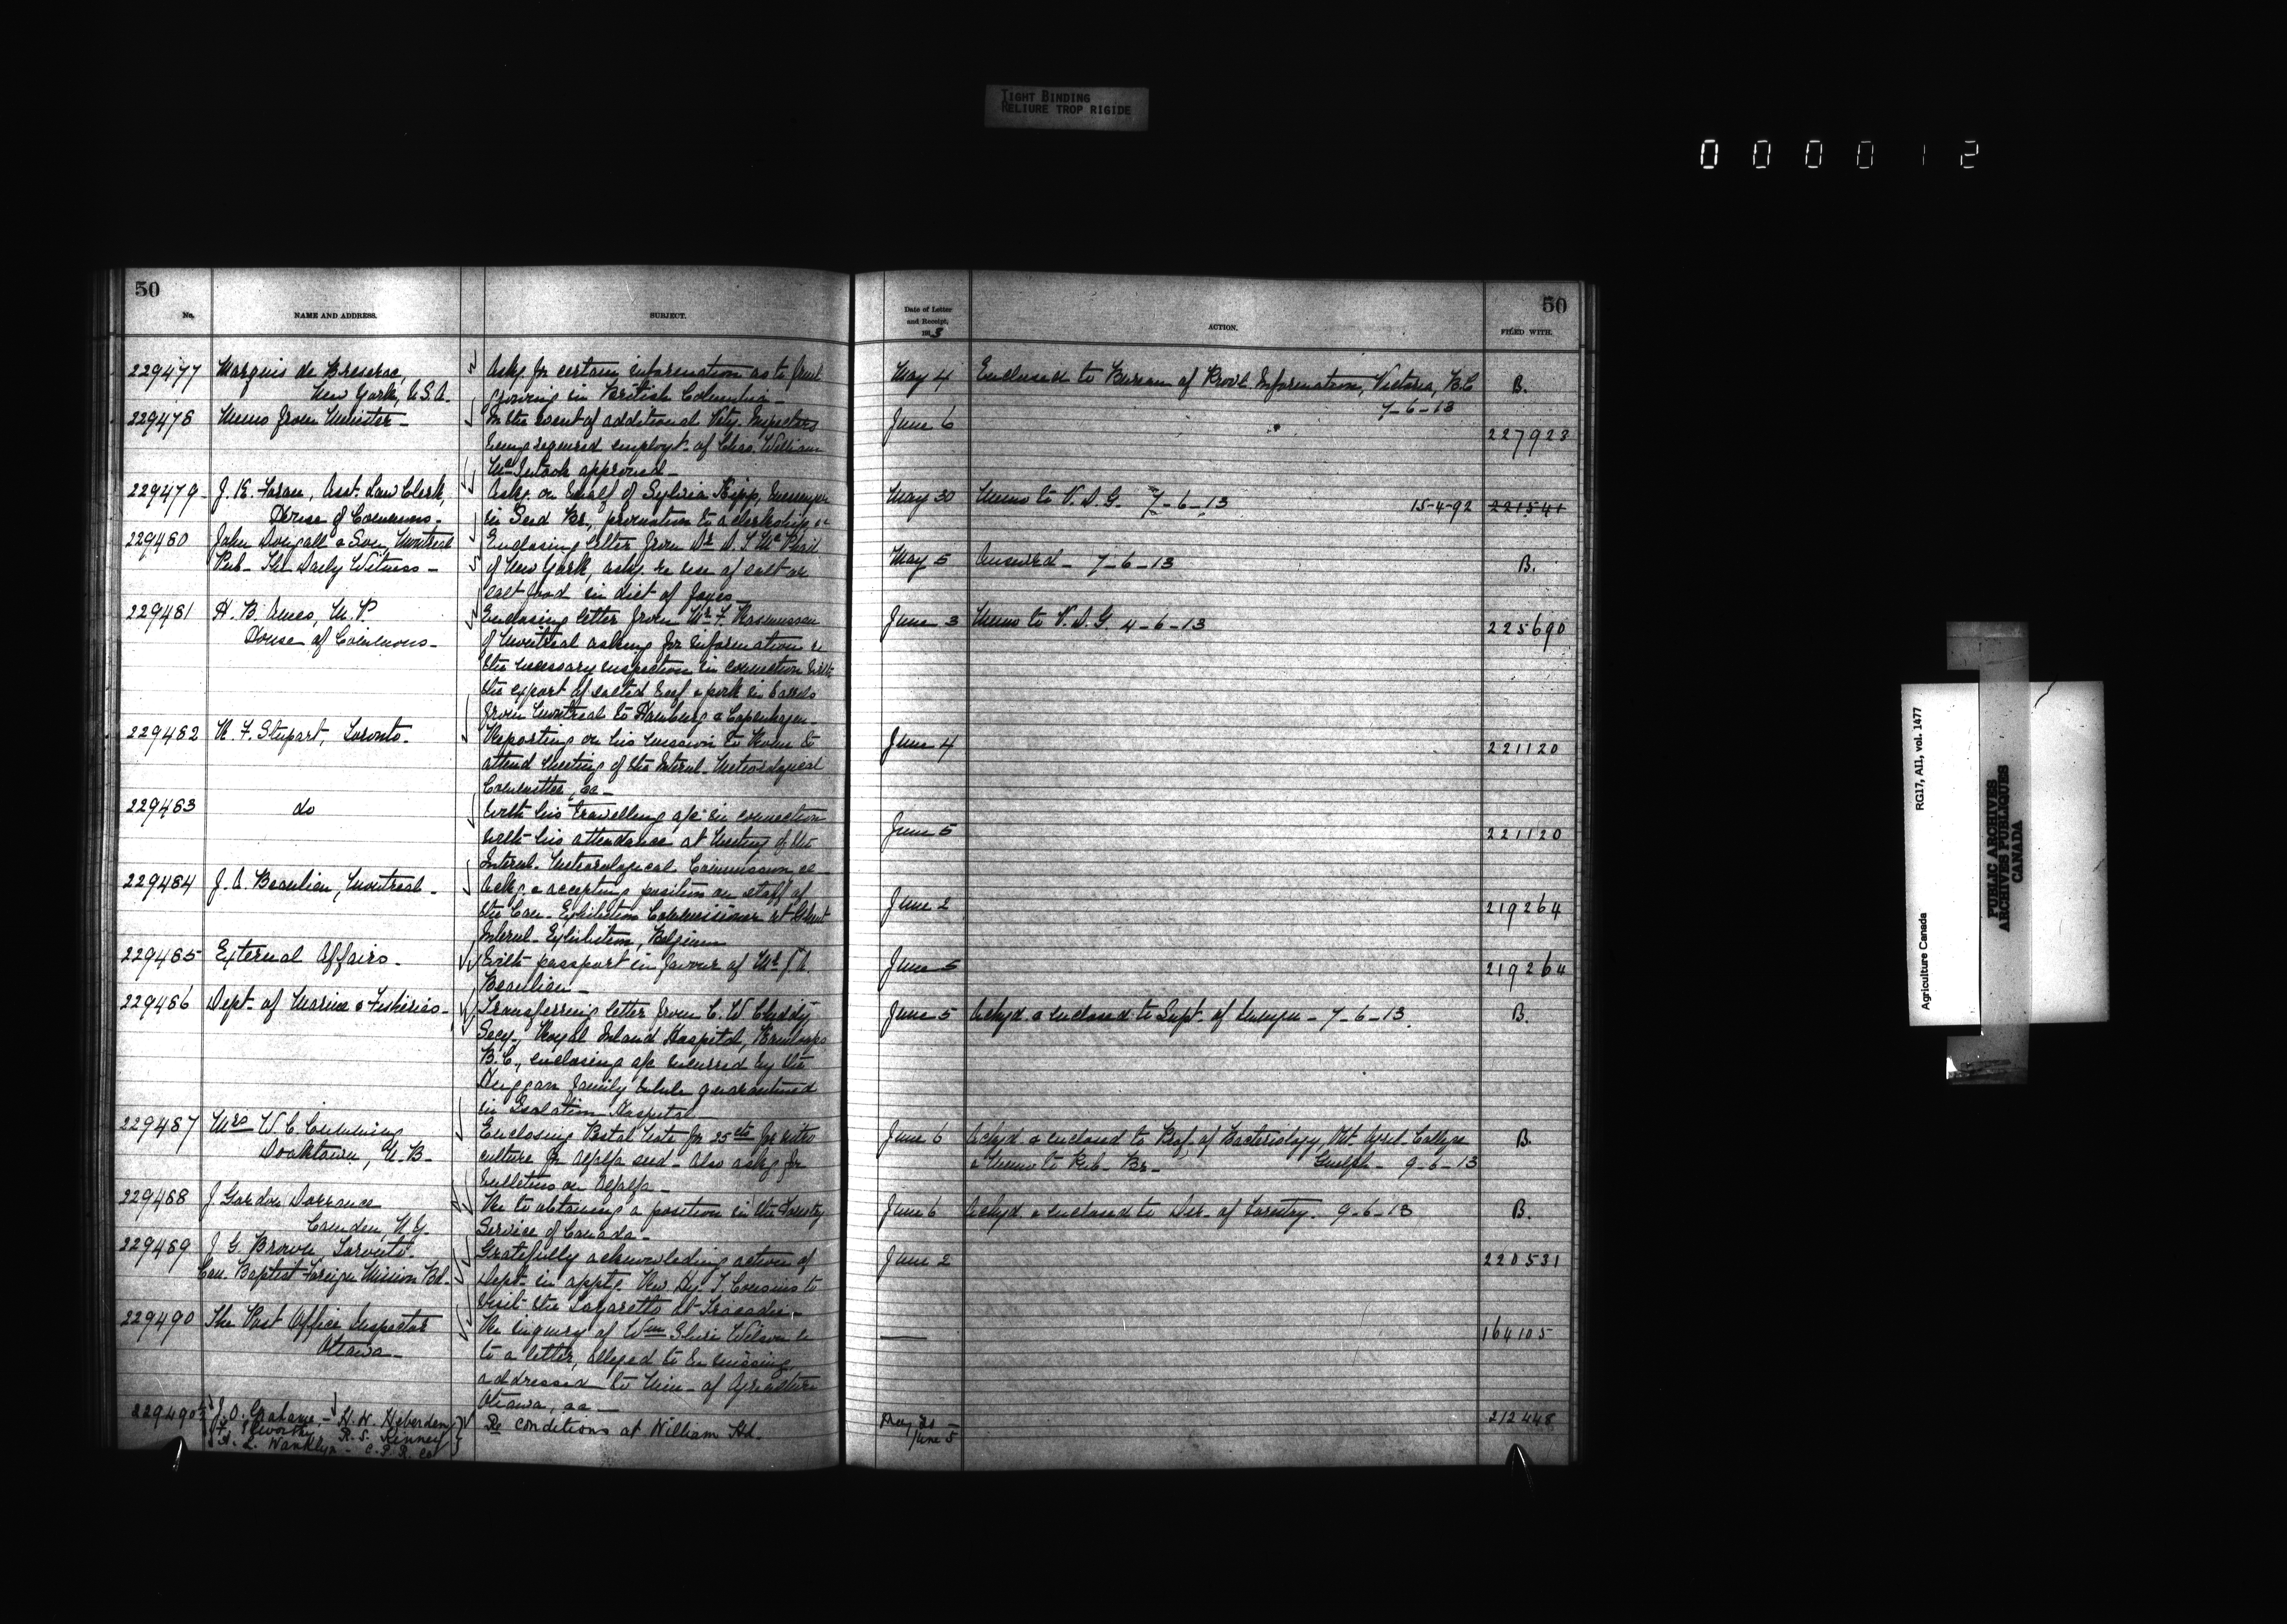 TIGHT BINDING
RELIURE TROP RIGIDE
000012
50
No.
NAME AND ADDRESS.
SUBJECT.
Date of Letter
and Receipt,
1913
ACTION.
50
FILED WITH.
229477 Marquis de
New York, U.S.A.
Askg. for certain information as to fruit
growing in British Columbia
May 4 Enclosed to Bureau of Prov'l. Information, Victoria, B.C. B.
7-6-13
229478 Memo from Minister
In the event of additional Vety. Inspectors
being required employt. of Chas. William
McIntosh approved
June 6 227923
229479 J. K. Foran, Asst. Law Clerk,
House of Commons
Askg. on behalf of Sylvia Kipp, messenger
in Seed Br., promotion to a clerkship
May 30 Memo to V. D. G. 7-6-13 15-4-92 221541
229480 John Dougall & Son, Montreal
Pub. The Daily Witness
Enclosing letter from Dr.
of New York, askg. re use of salt or
salt food in diet of foxes
May 5 Answrd 7-6-13 B.
229481 H. B. Ames, M.P.
House of Commons
Enclosing letter from Mr. F. Rasmussen
of Montreal asking for information re
the necessary inspection in connection with
the export of salted beef & pork in barrels
from Montreal to Hamburg & Copenhagen
June 3 Memo to V. D. G. 4-6-13 225690
229482 R. F. Stupart, Toronto
Reporting on his mission to Rome to
attend meeting of the Internl. Meteorological
Committee, &c
June 4 221120
229483 do
With his travelling a/c in connection
with his attendance at meeting of the
Internl. Meteorological Commission &c
June 5 221120
229484 J. A. Beaulieu, Montreal
Ackg. & accepting position on staff of
the Can. Exhibition Commissioner at Ghent
Internl. Exhibition, Belgium
June 2 219264
229485 External Affairs
With passport in favour of Mr. J. A.
Beaulieu
June 5 219264
229486 Dept. of Marine & Fisheries
Transferring letter from C. W.
Secy., Royal Inland Hospital, Kamloops
B.C., enclosing a/c incurred by the
family while quarantined
in Isolation Hospital
June 5 Ackgd. & enclosed to Supt. of Immgn. 7-6-13 B.
229487 Mrs. W. C. Cumming
Doaktown, N.B.
Enclosing Postal Note for 25cts for nitro
culture for alfalfa seed. Also askg. for
bulletins on alfalfa
June 6 Ackgd. & enclosed to Prof. of Bacteriology, Ont. Agrl. College
& Memo to Pub. Br. Guelph 9-6-13 B.
229488 J Gordon Dorrance
Camden, N.Y.
Re to obtaining a position in the Forestry
Service of Canada
June 6 Ackgd. & enclosed to Dir. of Forestry. 9-6-13 B.
229489 J. G. Brown, Toronto
Can. Baptist Foreign Mission Bd.
Gratefully acknowledging action of
Dept. in apptg. Rev. Cousins to
visit the Lazaretto at Tracadie
June 2 220531
229490 The Post Office Inspector
Ottawa
Re inquiry of Wm. Wilson
to a letter, alleged to be missing
addressed to Min. of Agriculture
Ottawa, &c
164105
229490½ J. O. Grahame, H. N. Heberden
R. S. Kenney
A. L. Wanklyn - C. P. R. Co
Re conditions at William Hd.
May 20
June 5
212448
Agriculture Canada RG17, AII, vol. 1477
PUBLIC ARCHIVES
ARCHIVES PUBLIQUES
CANADA